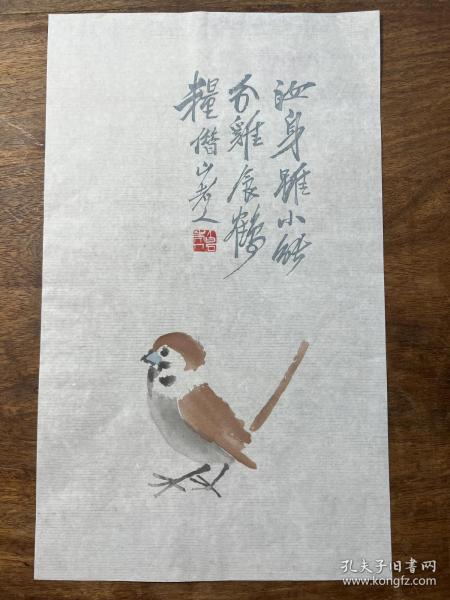 汝身雖小能
分雞食鶴
糧借山老人
孔夫子旧书网
www.kongfz.com